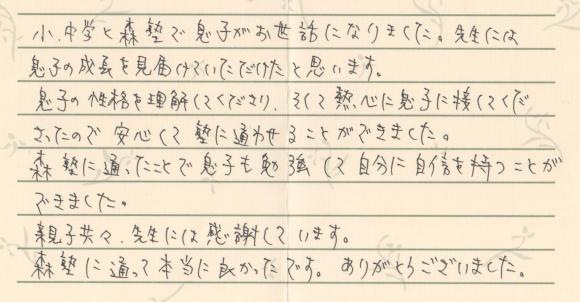 小、中学と森塾で息子がお世話になりました。先生には
息子の成長を見届けていただけたと思います。
息子の性格を理解してくださり、そして熱心に息子に接してくだ
さったので安心して塾に通わせることができました。
森塾に通ったことで息子も勉強して自分に自信を持つことが
できました。
親子共々、先生には感謝しています。
森塾に通って本当に良かったです。ありがとうございました。